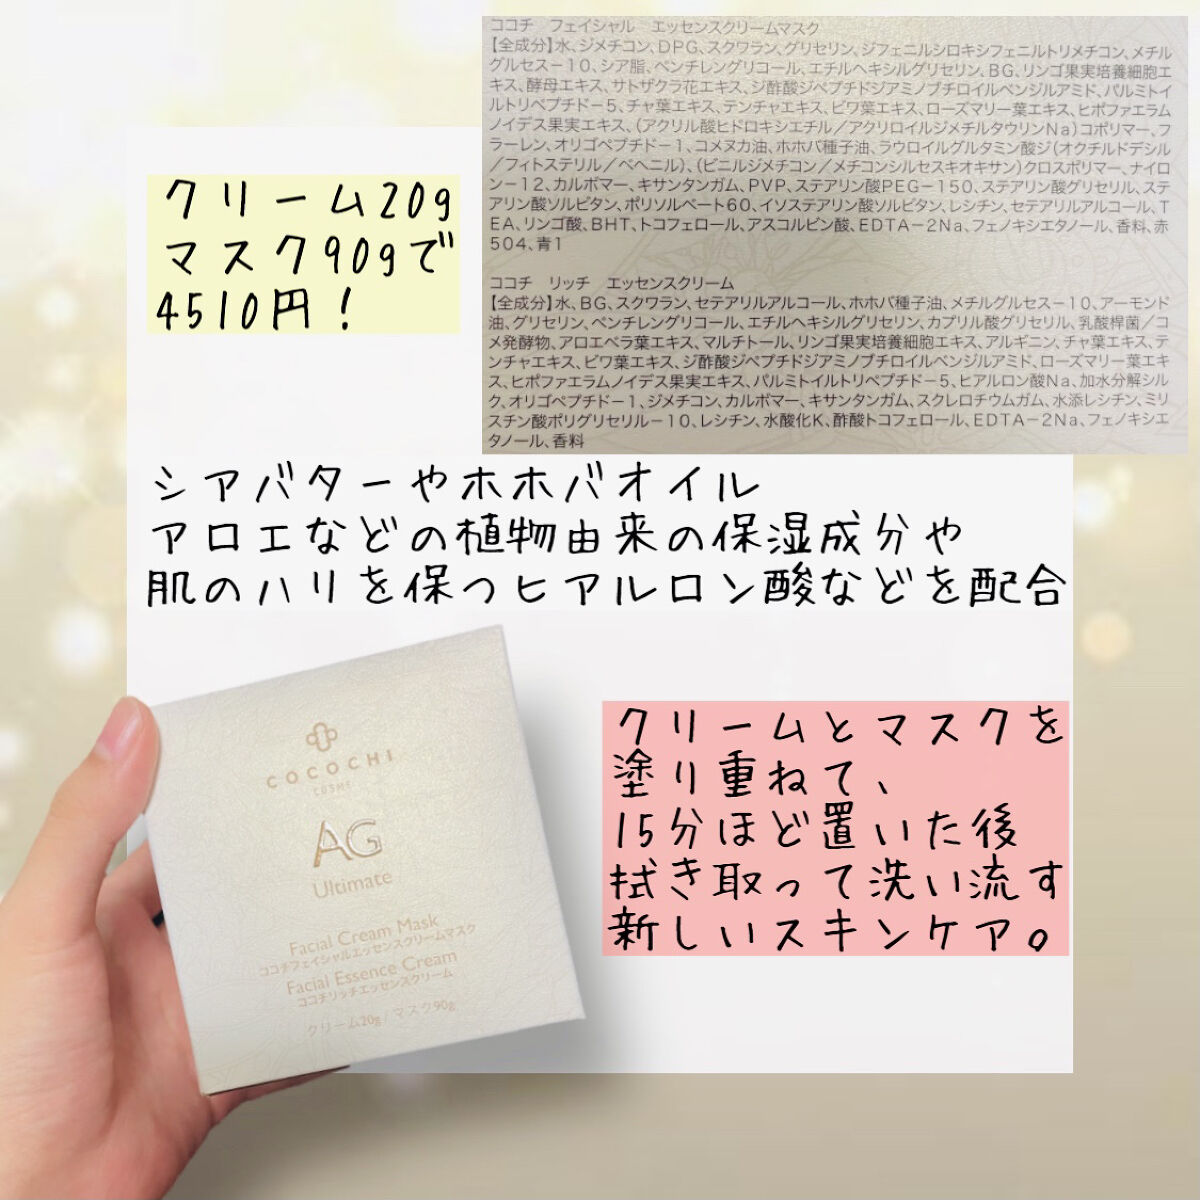 ココチ フェイシャル エッセンスクリームマスク
【全成分】水、ジメチコン、DPG、スクワラン、グリセリン、ジフェニルシロキシフェニルトリメチコン、メチル
グルセス-10、シア脂、ペンチレングリコール、エチルヘキシルグリセリン、BG、リンゴ果実培養細胞エ
キス、酵母エキス、サトザクラ花エキス、ジ酢酸ジペプチドジアミノブチロイルベンジルアミド、パルミトイ
ルトリペプチド-5、チャ葉エキス、テンチャエキス、ビワ葉エキス、ローズマリー葉エキス、ヒポファエラム
ノイデス果実エキス、(アクリル酸ヒドロキシエチル/アクリロイルジメチルタウリンNa)コポリマー、フ
ラーレン、オリゴペプチド-1、コメヌカ油、ホホバ種子油、ラウロイルグルタミン酸ジ(オクチルドデシル
/フィトステリル/ベヘニル)、(ビニルジメチコン/メチコンシルセスキオキサン)クロスポリマー、ナイロ
ン-12、カルボマー、キサンタンガム、PVP、ステアリン酸PEG-150、ステアリン酸グリセリル、ステ
アリン酸ソルビタン、ポリソルベート60、イソステアリン酸ソルビタン、レシチン、セテアリルアルコール、T
EA、リンゴ酸、BHT、トコフェロール、アスコルビン酸、EDTA-2Na、フェノキシエタノール、香料、赤
504、青1
ココチ リッチ エッセンスクリーム
【全成分】水、BG、スクワラン、セテアリルアルコール、ホホバ種子油、メチルグルセス-10、アーモンド
油、グリセリン、ペンチレングリコール、エチルヘキシルグリセリン、カプリル酸グリセリル、乳酸桿菌/コ
メ発酵物、アロエベラ葉エキス、マルチトール、リンゴ果実培養細胞エキス、アルギニン、チャ葉エキス、テ
ンチャエキス、ビワ葉エキス、ジ酢酸ジペプチドジアミノブチロイルベンジルアミド、ローズマリー葉エキ
ス、ヒポファエラムノイデス果実エキス、パルミトイルトリペプチド-5、ヒアルロン酸Na、加水分解シル
ク、オリゴペプチド-1、ジメチコン、カルボマー、キサンタンガム、スクレロチウムガム、水添レシチン、ミリ
スチン酸ポリグリセリル-10、レシチン、水酸化K、酢酸トコフェロール、EDTA-2Na、フェノキシエ
タノール、香料
クリーム20g
マスク90gで
4510円!
シアバターやホホバオイル
アロエなどの植物由来の保湿成分や
肌のハリを保つヒアルロン酸などを配合
COCOCHI
COSME
AG
Ultimate
Facial Cream Mask
ココチフェイシャルエッセンスクリームマスク
Facial Essence Cream
ココチリッチエッセンスクリーム
クリーム20g / マスク90g
クリームとマスクを
塗り重ねて、
15分ほど置いた後
拭き取って洗い流す
新しいスキンケア。